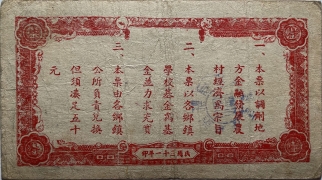 一、本票以調劑地
方金融緩便農
村經濟為宗旨
二、本票以各鄉鎮
學校基金為基
金並力求充實
三、本票由各鄉鎮
公所負責兌換
但須湊足五十
元
民國三十一年印